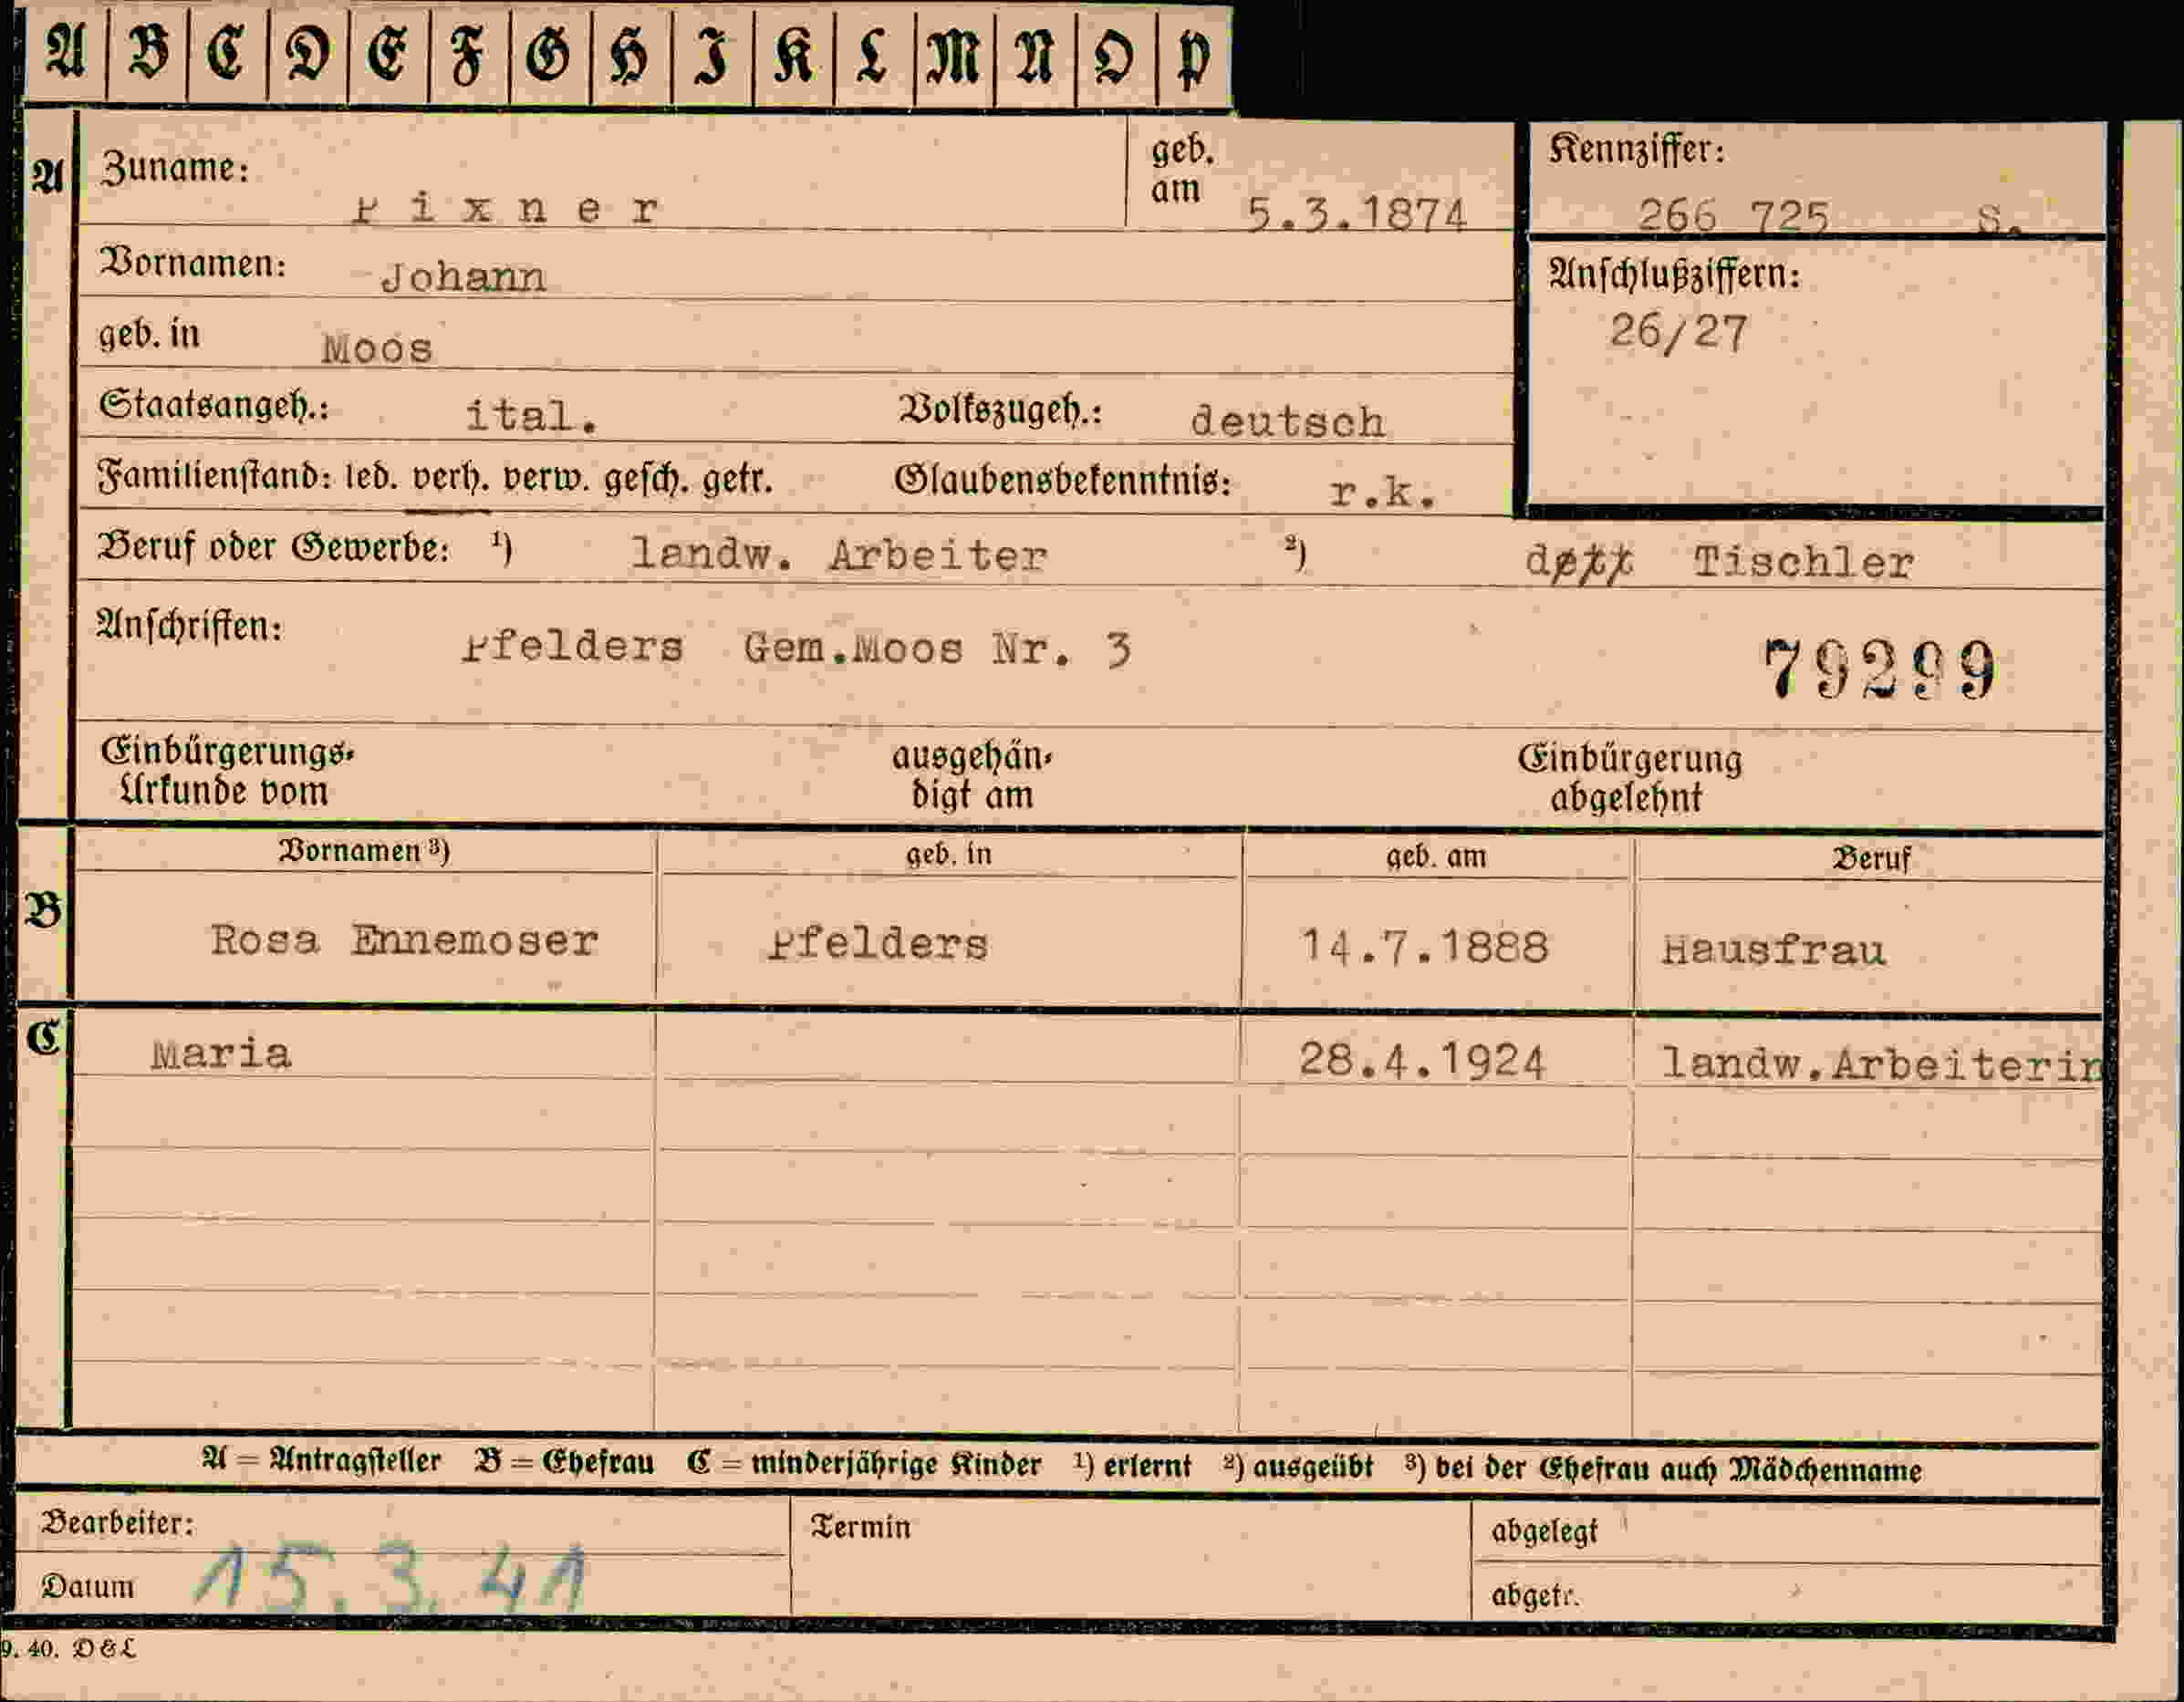 A B C D E F G H I K L M N O P
A Zuname: Pixner geb. am 5.3.1874
Kennziffer: 266 725 S.
Vornamen: Johann
Anschlußziffern: 26/27
geb. in Moos
Staatsangeh.: ital. Volkszugeh.: deutsch
Familienstand: led. verh. verw. gesch. getr. Glaubensbekenntnis: r.k.
Beruf oder Gewerbe: ¹) landw. Arbeiter ²) Tischler
Anschriften: Pfelders Gem.Moos Nr. 3
79299
Einbürgerungs-Urkunde vom ausgehändigt am Einbürgerung abgelehnt
Vornamen ³) geb. in geb. am Beruf
B Rosa Ennemoser Pfelders 14.7.1888 Hausfrau
C Maria 28.4.1924 landw.Arbeiterin
A = Antragsteller B = Ehefrau C = minderjährige Kinder ¹) erlernt ²) ausgeübt ³) bei der Ehefrau auch Mädchenname
Bearbeiter: Termin abgelegt
Datum 15.3.41 abgetr.
9. 40. D & L